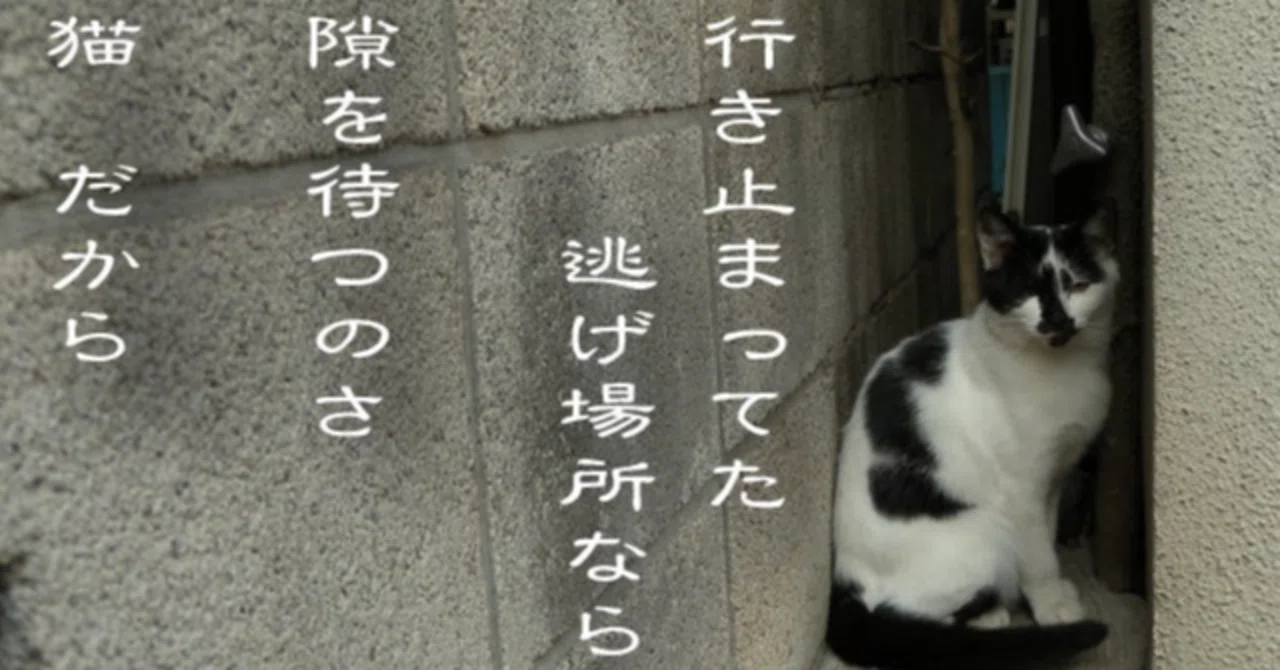 行き止まってた
逃げ場所なら
隙を待つのさ
猫 だから